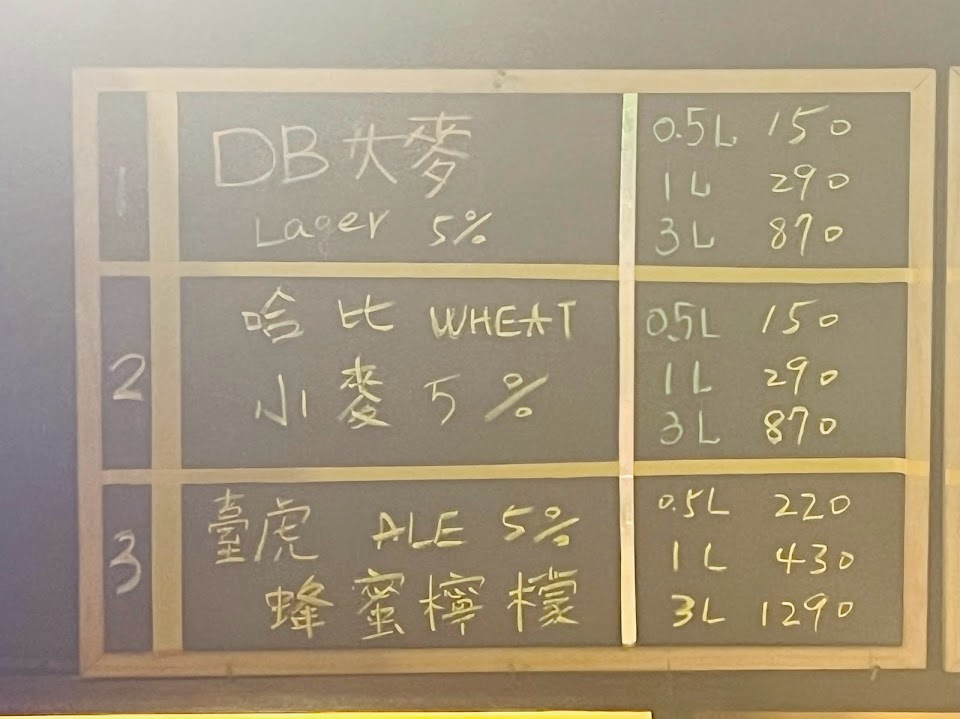 1
DB大麥
Lager 5%
0.5L 150
1L 290
3L 870
2
哈比 WHEAT
小麥 5%
0.5L 150
1L 290
3L 870
3
臺虎 ALE 5%
蜂蜜檸檬
0.5L 220
1L 430
3L 1290